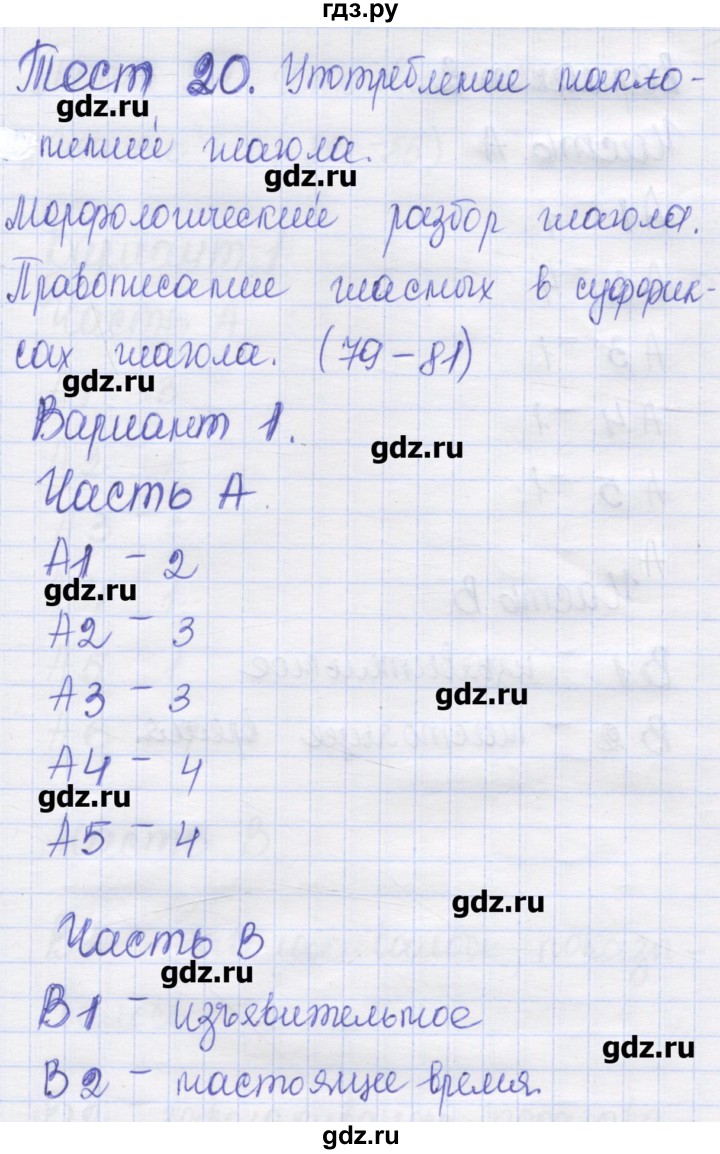 гдз.ру
Тест 20. Употребление накло-
gdz.ru
нений глагола.
gdz.ru
Морфологический разбор глагола.
Правописание гласных в суффик-
сах глагола. (79-81)
gdz.ru
Вариант 1.
gdz.ru
Часть А
А1 - 2
gdz.ru
А2 - 3
А3 - 3
gdz.ru
А4 - 4
gdz.ru
А5 - 4
gdz.ru
Часть В
gdz.ru
В1 - изъявительное
gdz.ru
В2 - настоящее время.
gdz.ru